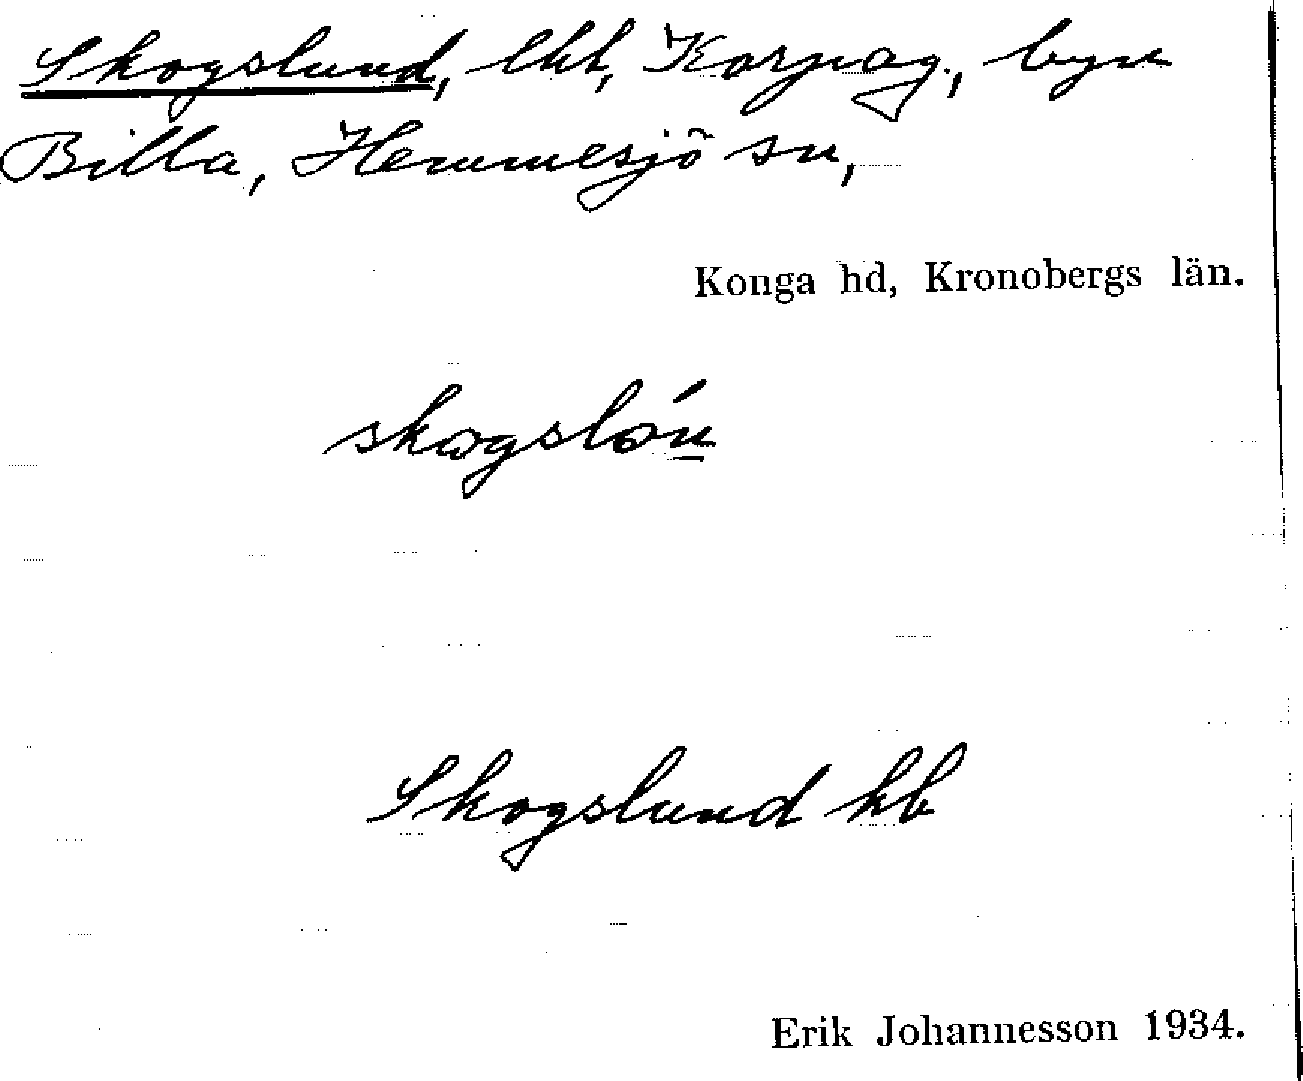 Skogslund, lht, Korpag., byn
Billa, Hemmesjö sn,
Konga hd, Kronobergs län.
skogsló̱n
Skogslund hb
Erik Johannesson 1934.